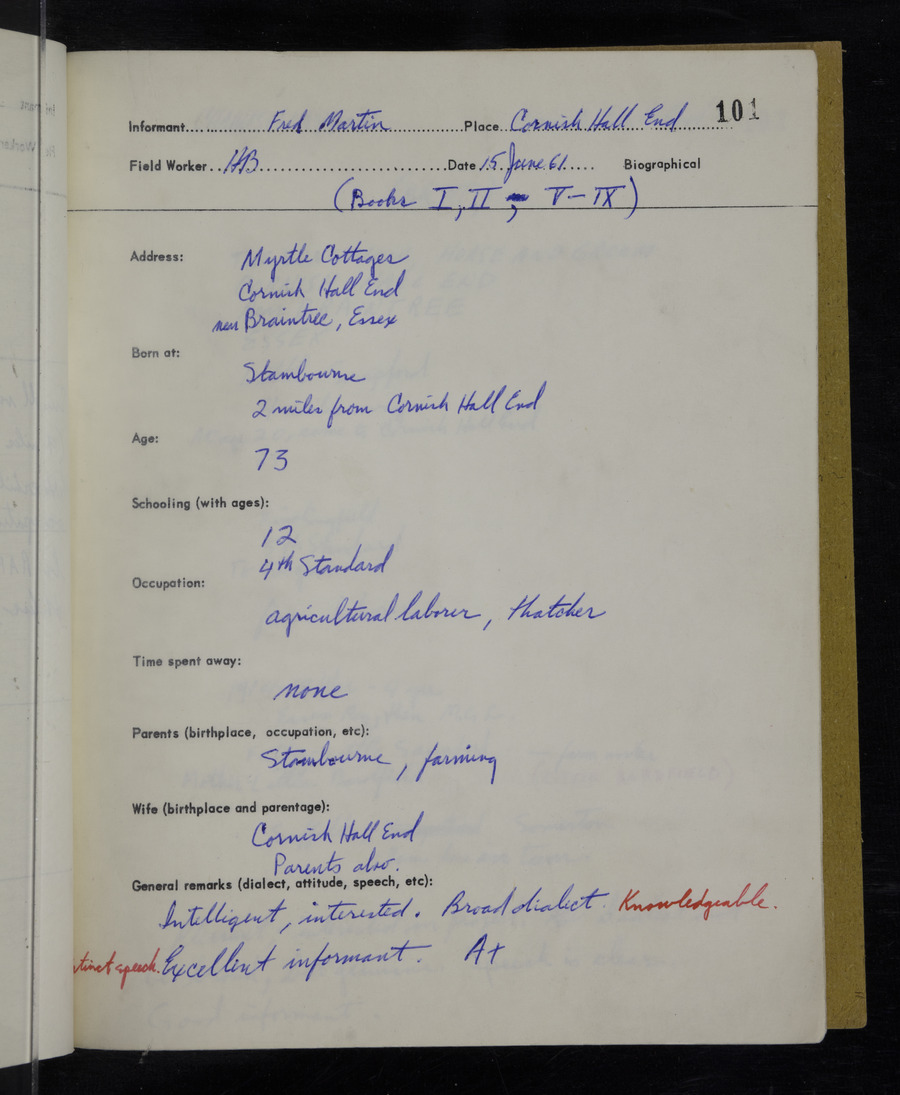 101
Informant Fred Martin Place Cornish Hall End
Field Worker HB Date 15 June 61 Biographical
(Books I, II, V-IX)
Address: Myrtle Cottages
Cornish Hall End
near Braintree, Essex
Born at:
Stambourne
2 miles from Cornish Hall End
Age:
73
Schooling (with ages):
12
4th Standard
Occupation:
agricultural laborer, thatcher
Time spent away:
none
Parents (birthplace, occupation, etc):
Stambourne, farming
Wife (birthplace and parentage):
Cornish Hall End
Parents also.
General remarks (dialect, attitude, speech, etc):
Intelligent, interested. Broad dialect. Knowledgeable.
speech. Excellent informant. A+